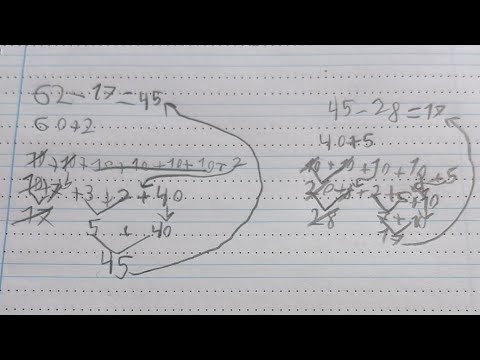 62 - 17 = 45
60+2
10+10+10+10+10+10+2
10+7 +3 +2 +40
17
5 + 40
45
45 - 28 = 17
40+5
10+10+10+10+5
28
17